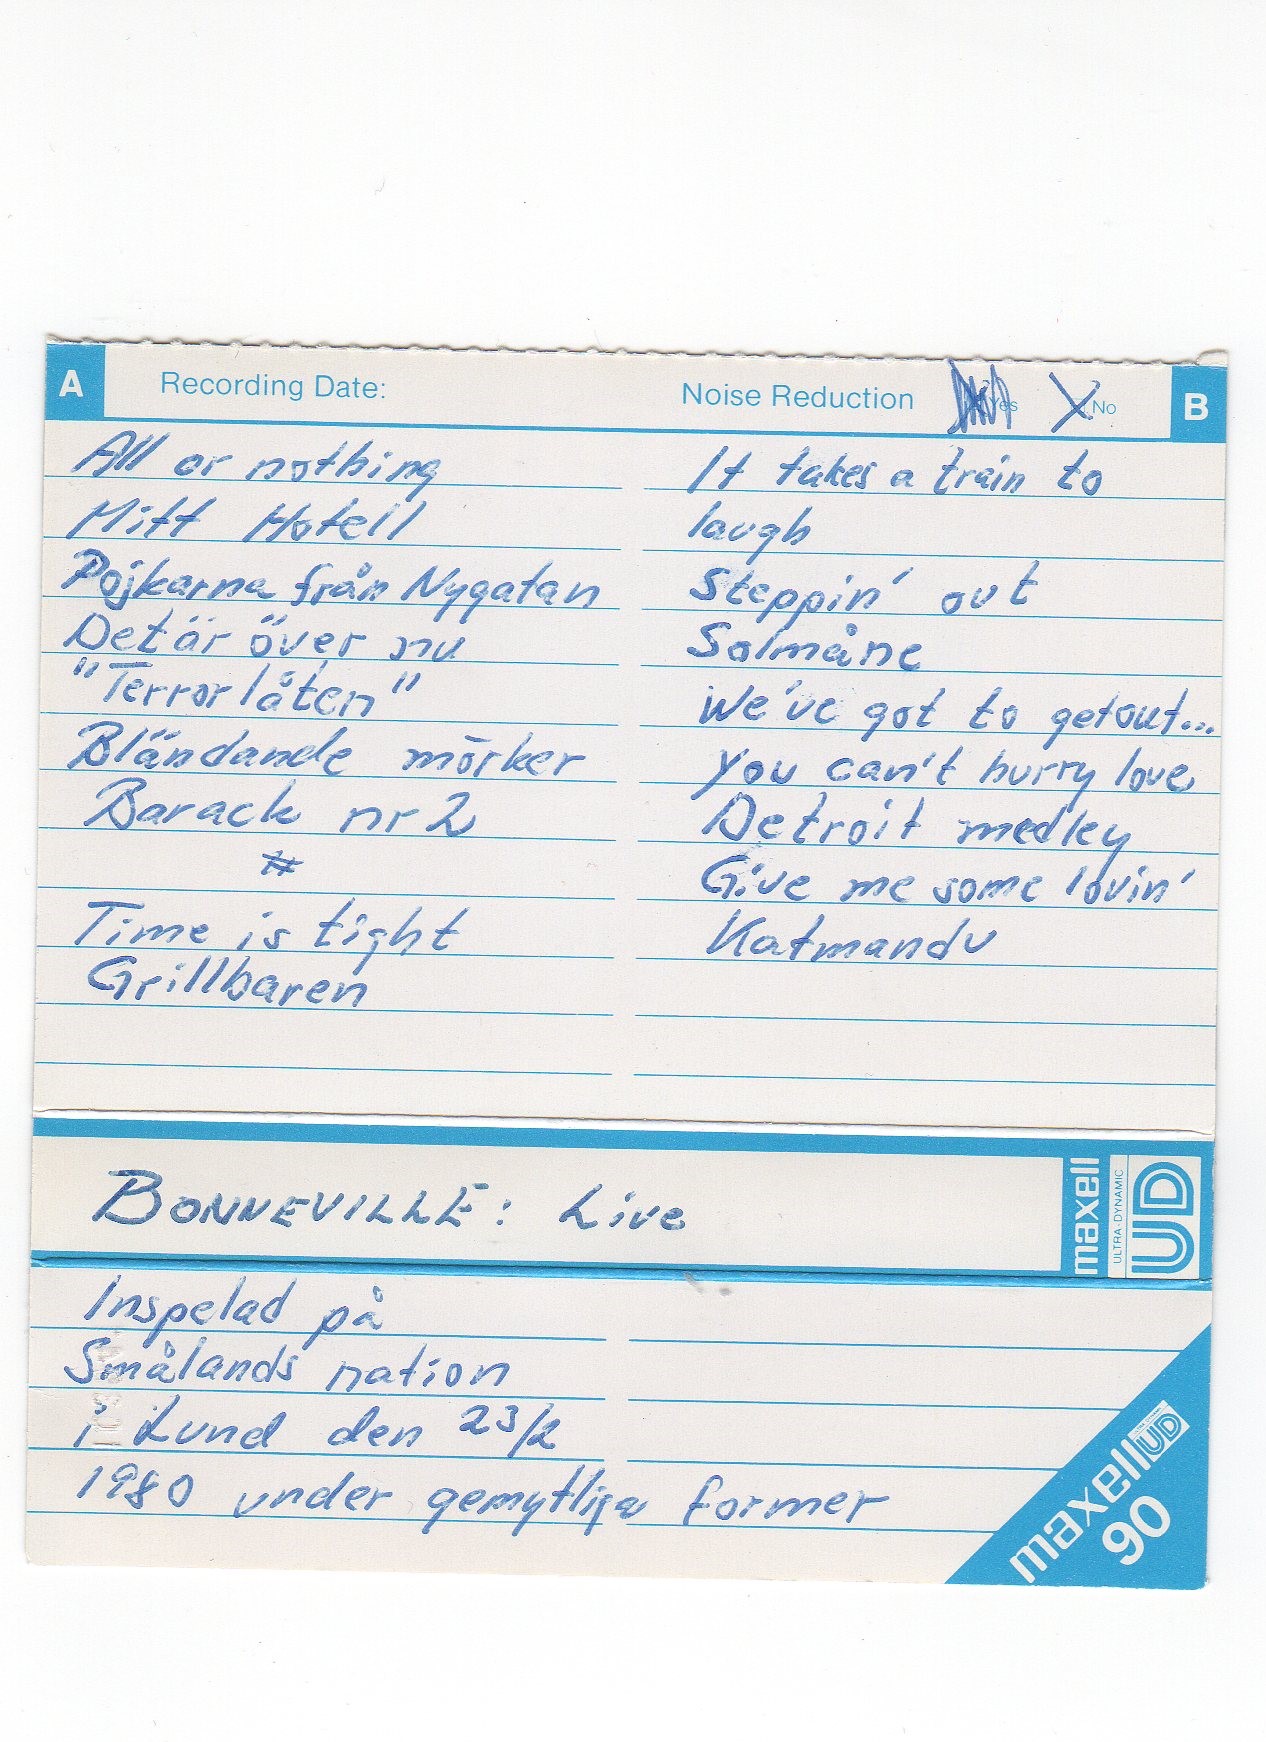 A Recording Date: Noise Reduction Yes No B
All or nothing
Mitt Hotell
Pojkarna från Nygatan
Det är över nu
"Terrorlåten"
Bländande mörker
Barack nr 2
#
Time is tight
Grillbaren
It takes a train to
laugh
Steppin' out
Solmåne
We've got to get out...
You can't hurry love
Detroit medley
Give me some lovin'
Katmandu
BONNEVILLE: Live
maxell
ULTRA-DYNAMIC
UD
Inspelad på
Smålands nation
i Lund den 23/2
1980 under gemytliga former
maxell UD
90